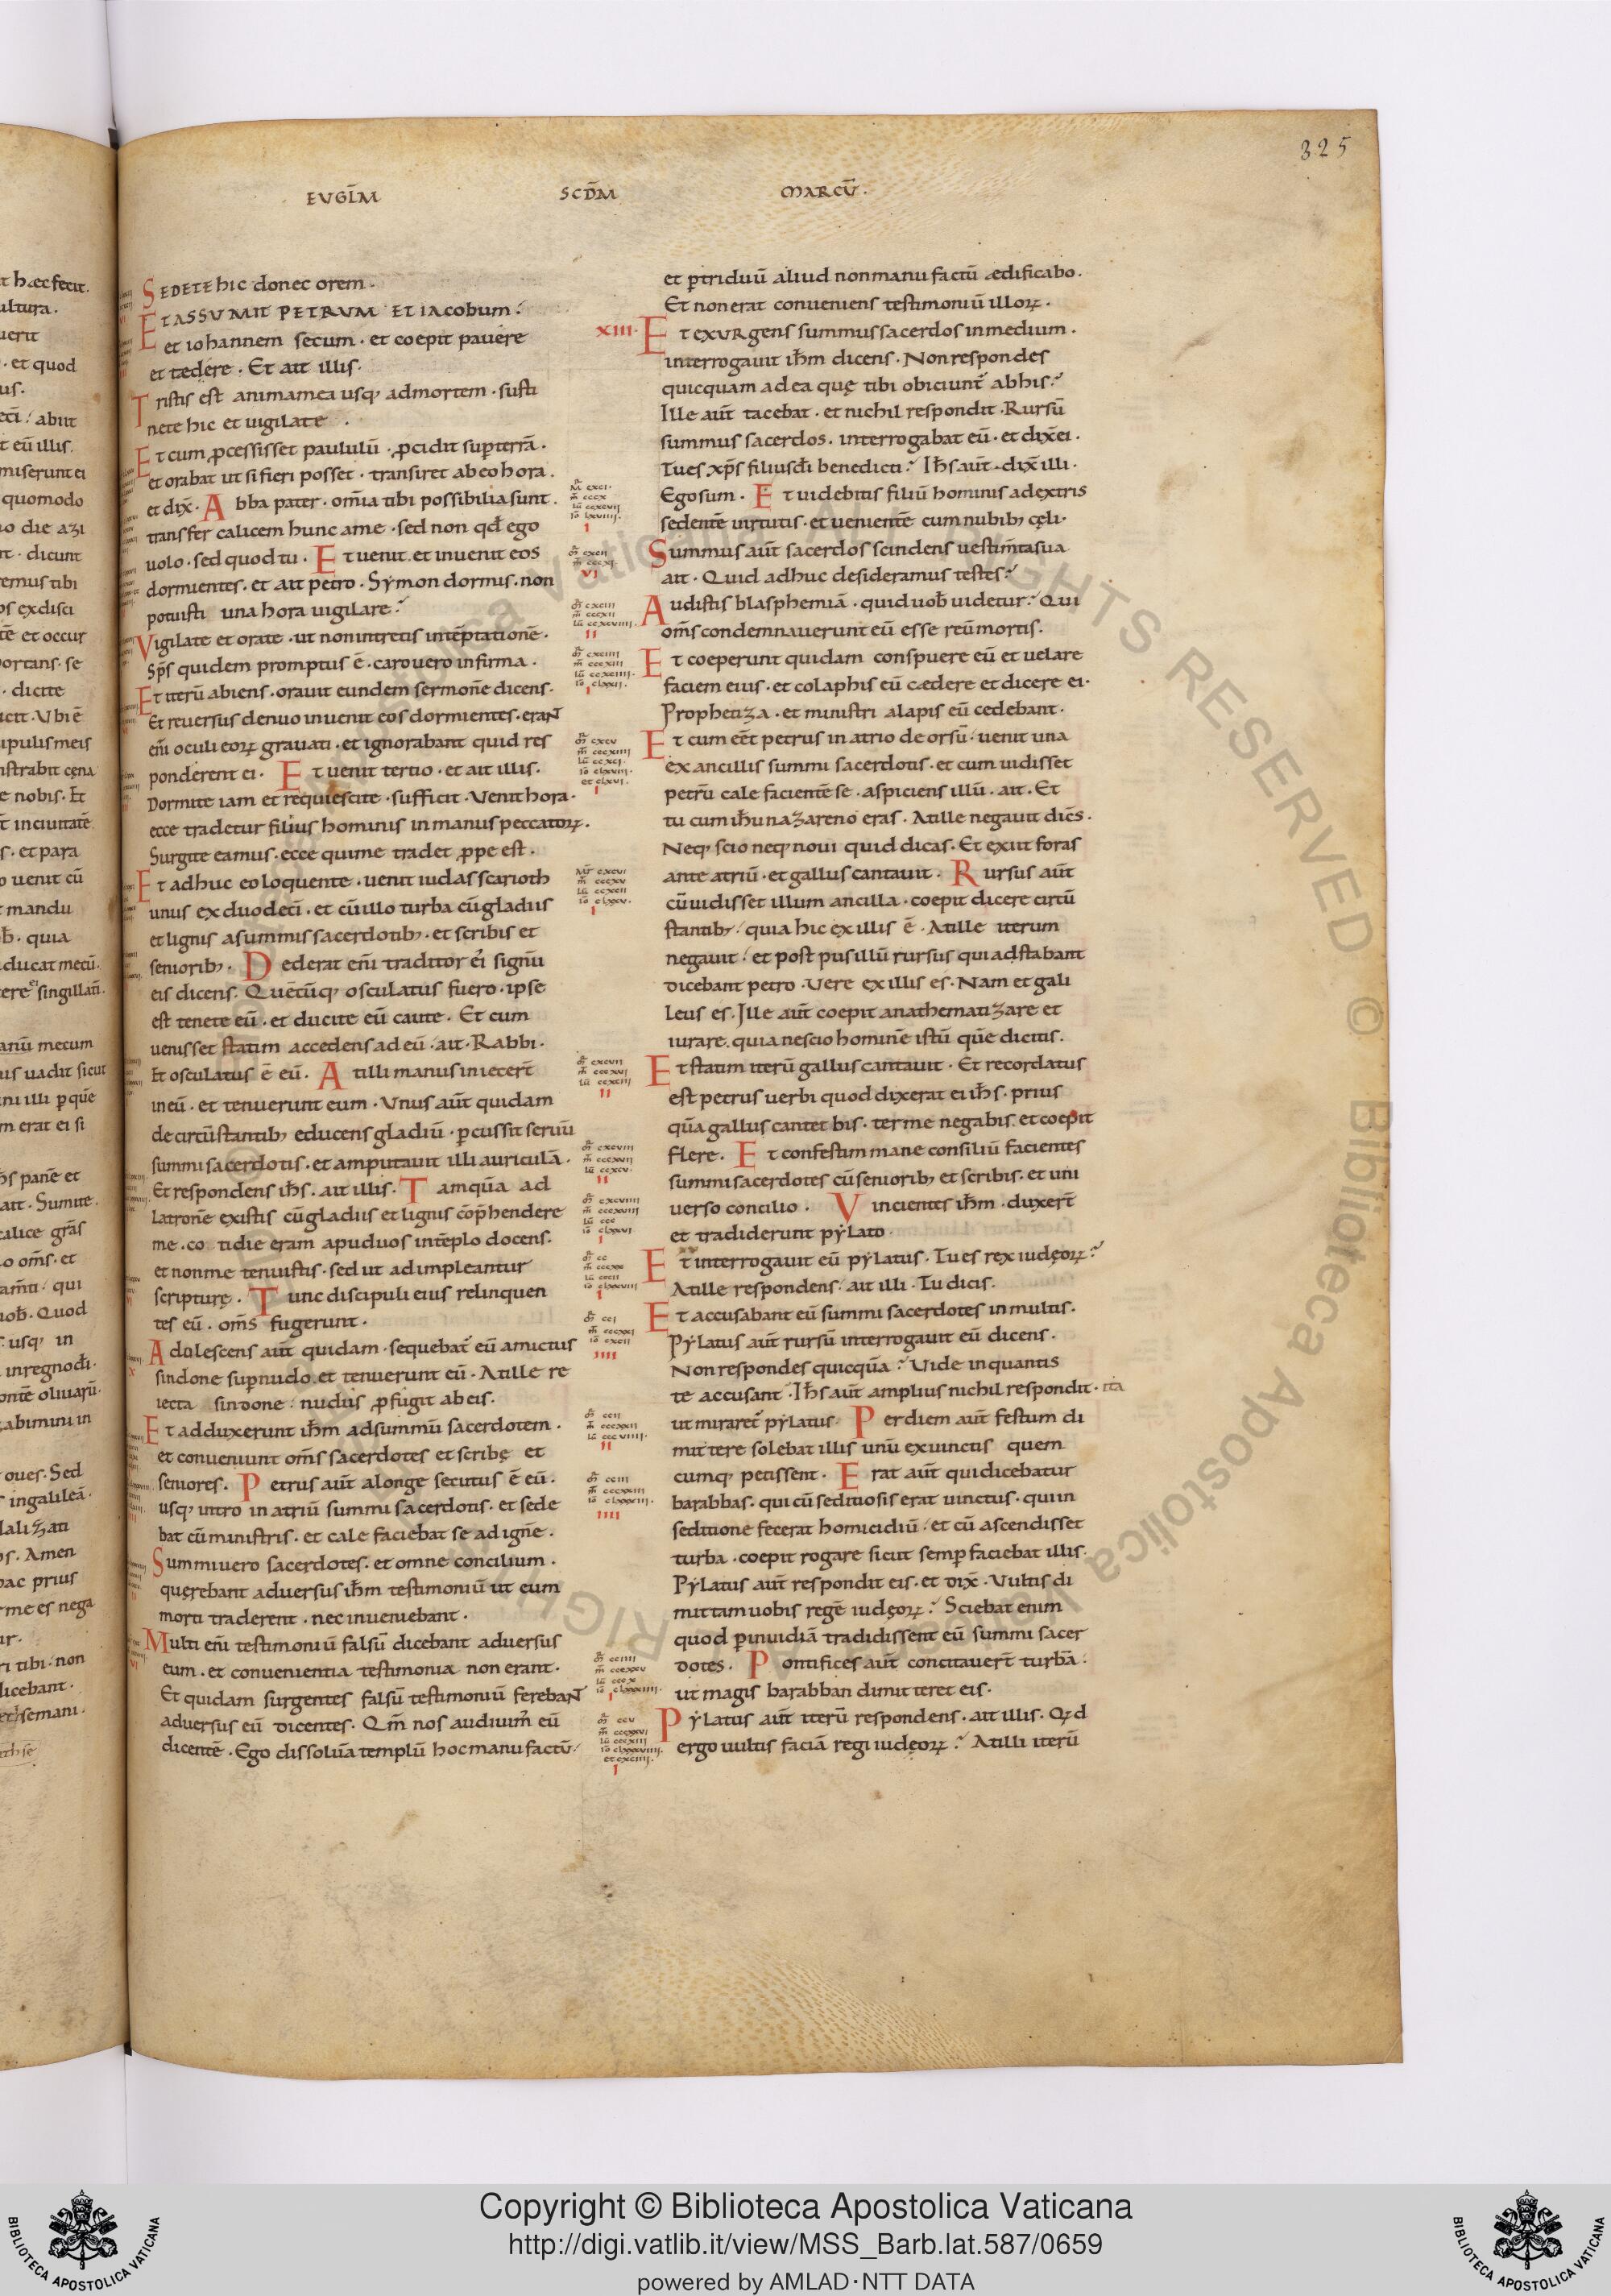 325
EVGL̄M SCD̄M MARCŪ.
SEDETE hic donec orem.
ET ASSVMIT PETRVM ET IAcobum.
et iohannem secum. et coepit pavere
et tædere. Et ait illis.
Tristis est anima mea usq; ad mortem. susti
nete hic et vigilate.
Et cum p̱cessisset paululū. p̱cidit sup̱ terrā.
et orabat ut si fieri posset. transiret ab eo hora.
et dix̄. Abba pater. om̄ia tibi possibilia sunt.
transfer calicem hunc a me. sed non qd̄ ego
uolo. sed quod tu. Et uenit. et inuenit eos
dormientes. et ait petro. Sẏmon dormis. non
potuisti una hora uigilare?
Vigilate et orate. ut non intretis in tēptationē.
Sp̄s quidem promptus ē. caro uero infirma.
Et iterū abiens. orauit eundem sermonē dicens.
Et reuersus denuo inuenit eos dormientes. erant
eni̅ oculi eoꝝ grauati. et ignorabant quid res
ponderent ei. Et uenit tertio. et ait illis.
Dormite iam et requiescite. sufficit. Venit hora.
ecce tradetur filius hominis in manus peccatoꝝ.
Surgite eamus. ecce qui me tradet p̱pe est.
Et adhuc eo loquente. uenit iudas scarioth
unus ex duodeci̅. et cū illo turba cū gladiis
et lignis a summis sacerdotib; et scribis et
seniorib;. Dederat eni̅ traditor ei signū
eis dicens. Quēcūq; osculatus fuero. ipse
est tenete eū. et ducite eū caute. Et cum
uenisset statim accedens ad eū. ait. Rabbi.
Et osculatus ē eū. At illi manus iniecer̄t
in eū. et tenuerunt eum. Vnus aūt quidam
de circūstantib; educens gladiū. p̱cussit seruū
summi sacerdotis. et amputauit illi auriculā.
Et respondens ih̄s. ait illis. Tamquā ad
latronē existis cū gladiis et lignis cōp̄hendere
me. cotidie eram apud uos in tēplo docens.
et non me tenuistis. sed ut adimpleantur
scripturę. Tunc discipuli eius relinquen
tes eū. om̄s fugerunt.
Adulescens aūt quidam. sequebat̄ eū amictus
sindone sup̱ nudo. et tenuerunt eū. At ille re
iecta sindone. nudus p̱fugit ab eis.
Et adduxerunt ih̄m ad summū sacerdotem.
et conueniunt om̄s sacerdotes et scribę et
seniores. Petrus aūt a longe secutus ē eū.
usq; intro in atriū summi sacerdotis. et sede
bat cū ministris. et calefaciebat se ad ignē.
Summi uero sacerdotes. et omne concilium.
quęrebant aduersus ih̄m testimoniū ut eum
morti traderent. nec inueniebant.
Multi eni̅ testimoniū falsū dicebant aduersus
eum. et conuenientia testimonia non erant.
Et quidam surgentes falsū testimoniū ferebant
aduersus eū dicentes. Qm̄ nos audiuim̄ eū
dicentē. Ego dissoluā templū hoc manu factū.
et p̱ triduū aliud non manu factū ædificabo.
Et non erat conueniens testimoniū illoꝝ.
XIII. Et exurgens summus sacerdos in medium.
interrogauit ih̄m dicens. Non respondes
quicquam ad ea quę tibi obiciunt̄ ab his?
Ille aūt tacebat. et nichil respondit. Rursū
summus sacerdos. interrogabat eū. et dix̄ ei.
Tu es xp̄s filius di̅ benedicti? Ih̄s aūt. dix̄ illi.
Ego sum. Et uidebitis filiū hominis a dextris
sedentē uirtutis. et uenientē cum nubib; cęli.
Summus aūt sacerdos scindens uestim̄ta sua
ait. Quid adhuc desideramus testes?
Audistis blasphemiā. quid uob̄ uidetur? Qui
om̄s condemnauerunt eū esse reū mortis.
Et coeperunt quidam conspuere eū et uelare
faciem eius. et colaphis eū cædere et dicere ei.
Prophetiza. et ministri alapis eū cedebant.
Et cum eēt petrus in atrio deorsū. uenit una
ex ancillis summi sacerdotis. et cum uidisset
petrū calefacientē se. aspiciens illū. ait. Et
tu cum ih̄u nazareno eras. At ille negauit dicēs.
Neq; scio neq; noui quid dicas. Et exiit foras
ante atriū. et gallus cantauit. Rursus aūt
cū uidisset illum ancilla. coepit dicere circū
stantib; quia hic ex illis ē. At ille iterum
negauit. et post pusillū rursus qui adstabant
dicebant petro. Vere ex illis es. Nam et gali
leus es. Ille aūt coepit anathematizare et
iurare. quia nescio hominē istū quē dicitis.
Et statim iterū gallus cantauit. Et recordatus
est petrus uerbi quod dixerat ei ih̄s. prius
quā gallus cantet bis. ter me negabis. et coepit
flere. Et confestim mane consiliū facientes
summi sacerdotes cū seniorib; et scribis. et uni
uerso concilio. Vincientes ih̄m. duxer̄t
et tradiderunt pẏlato.
Et interrogauit eū pẏlatus. Tu es rex iudęoꝝ?
At ille respondens. ait illi. Tu dicis.
Et accusabant eū summi sacerdotes in multis.
Pẏlatus aūt rursū interrogauit eū dicens.
Non respondes quicquā? Uide in quantis
te accusant. Ih̄s aūt amplius nichil respondit. ita
ut miraret̄ pẏlatus. Per diem aūt festum di
mittere solebat illis unū ex uinctis quem
cumq; petissent. Erat aūt qui dicebatur
barabbas. qui cū seditiosis erat uinctus. qui in
seditione fecerat homicidiū. et cū ascendisset
turba. coepit rogare sicut semp̱ faciebat illis.
Pẏlatus aūt respondit eis. et dix̄. Vultis di
mittam uobis regē iudęoꝝ? Sciebat enim
quod p̱ inuidiā tradidissent eū summi sacer
dotes. Pontifices aūt concitauer̄t turbā.
ut magis barabban dimitteret eis.
Pẏlatus aūt iterū respondens. ait illis. Qd
ergo uultis faciā regi iudęoꝝ? At illi iterū
Copyright © Biblioteca Apostolica Vaticana
http://digi.vatlib.it/view/MSS_Barb.lat.587/0659
powered by AMLAD·NTT DATA